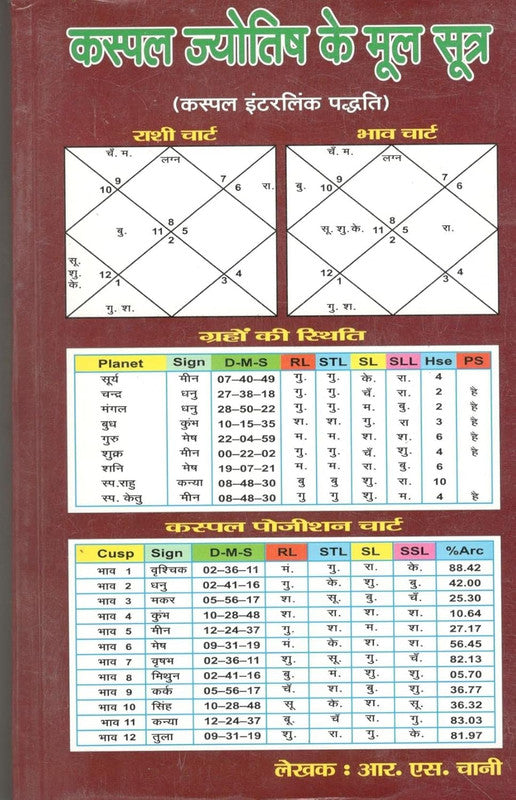 कस्पल ज्योतिष के मूल सूत्र
(कस्पल इंटरलिंक पद्धति)
राशी चार्ट
भाव चार्ट
चँ. म.
लग्न
9
10
7
6
रा.
बु.
8
11
5
2
सू.
शु.
के.
12
1
3
4
गु. श.
चँ. म.
लग्न
बु.
9
10
7
6
सू. शु. के.
8
11
5
2
रा.
12
1
3
4
गु. श.
ग्रहों की स्थिति
Planet Sign D-M-S RL STL SL SLL Hse PS
सूर्य मीन 07-40-49 गु. गु. के. रा. 4
चन्द्र धनु 27-38-18 गु. गु. चँ. रा. 2 है
मंगल धनु 28-50-22 गु. गु. म. बु. 2 है
बुध कुंभ 10-15-35 श. श. गु. रा 3 है
गुरु मेष 22-04-59 म. म. श. श. 6 है
शुक्र मीन 00-22-02 गु. गु. चँ. शु. 4 है
शनि मेष 19-07-21 म. म. रा. बु. 6
स्प.राहु कन्या 08-48-30 बु बु शु. रा. 10
स्प. केतु मीन 08-48-30 गु गु शु. म. 4 है
कस्पल पोजीशन चार्ट
Cusp Sign D-M-S RL STL SL SSL %Arc
भाव 1 वृश्चिक 02-36-11 मं. गु. रा. के. 88.42
भाव 2 धनु 02-41-16 गु. के. शु. बु. 42.00
भाव 3 मकर 05-56-17 श. सू. बु. चँ. 25.30
भाव 4 कुंभ 10-28-48 श. रा. श. श. 10.64
भाव 5 मीन 12-24-37 गु. श. म. श. 27.17
भाव 6 मेष 09-31-19 मं. के. श. श. 56.45
भाव 7 वृषभ 02-36-11 शु. सू. गु. चँ. 82.13
भाव 8 मिथुन 02-41-16 बु. म. शु. शु. 05.70
भाव 9 कर्क 05-56-17 चँ. श. बु. शु. 36.77
भाव 10 सिंह 10-28-48 सू के. श. सू. 36.32
भाव 11 कन्या 12-24-37 बू. चँ रा. गु. 83.03
भाव 12 तुला 09-31-19 शु. रा. गु. के. 81.97
लेखक : आर. एस. चानी